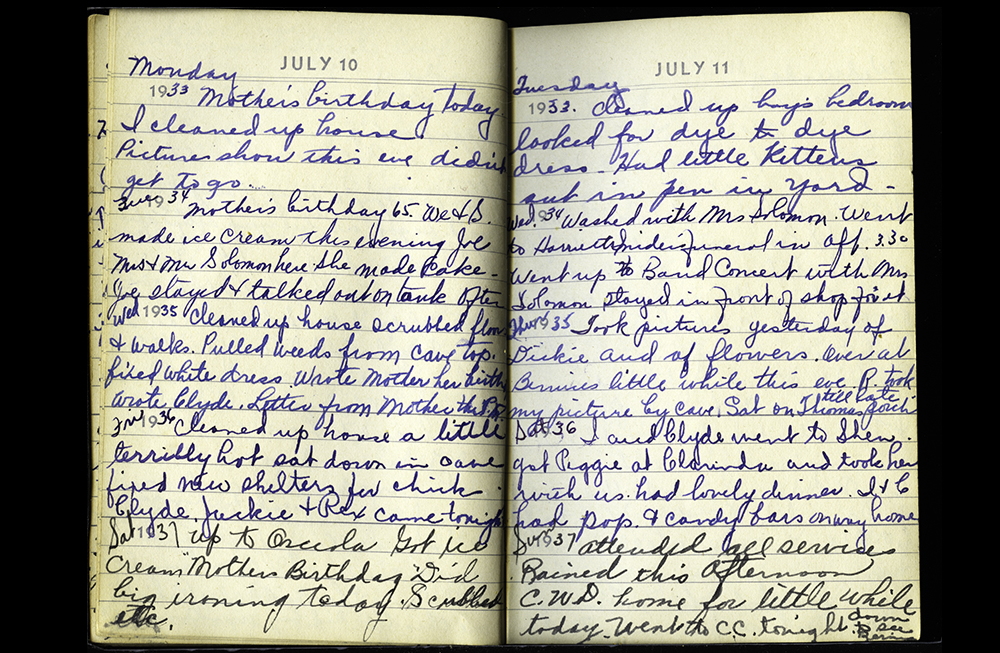 JULY 10
Monday
1933 Mother's birthday today
I cleaned up house
Pictures show this eve didn't
get to go
Tues 1934 Mother's birthday 65. We & S.
made ice cream this evening Joe
Mrs & Mr Solomon here She made Cake -
We stayed & talked out on tank after
Wed 1935 Cleaned up house scrubbed floor
& walks. Pulled weeds from cave top.
fixed white dress. Wrote Mother her birth
wrote Clyde. Letter from Mother this P.M
Fri 1936 Cleaned up house a little
terribly hot sat down in cave
fixed new shelters for chick
Clyde Jackie & Rex came tonight
Sat 1937 up to Osceola Got ice
Cream "Mothers Birthday" Did
big ironing today. Scrubbed
etc.
JULY 11
Tuesday
1933. Cleaned up boys bedroom
looked for dye to dye
dress - Had little Kittens
out in pen in yard -
Wed. 1934 Washed with Mrs Solomon. Went
to Harriett funeral in aff. 3.30
Went up to Band Concert with Mrs
Solomon stayed in front of shop for it
Thurs 1935 Took pictures yesterday of
Dickie and of flowers. Over at
Bernies little while this eve. R. took
my picture by cave. Sat on Thomas porch till late
Sat 1936 I and Clyde went to Shen.
got Peggie at Clarinda and took her
with us. had lovely dinner. I & C
had pop. & candy bars on way home
Sun 1937 attended all services
Rained this afternoon
C.W.D. home for little while
today. Went to C.C. tonight down
to see